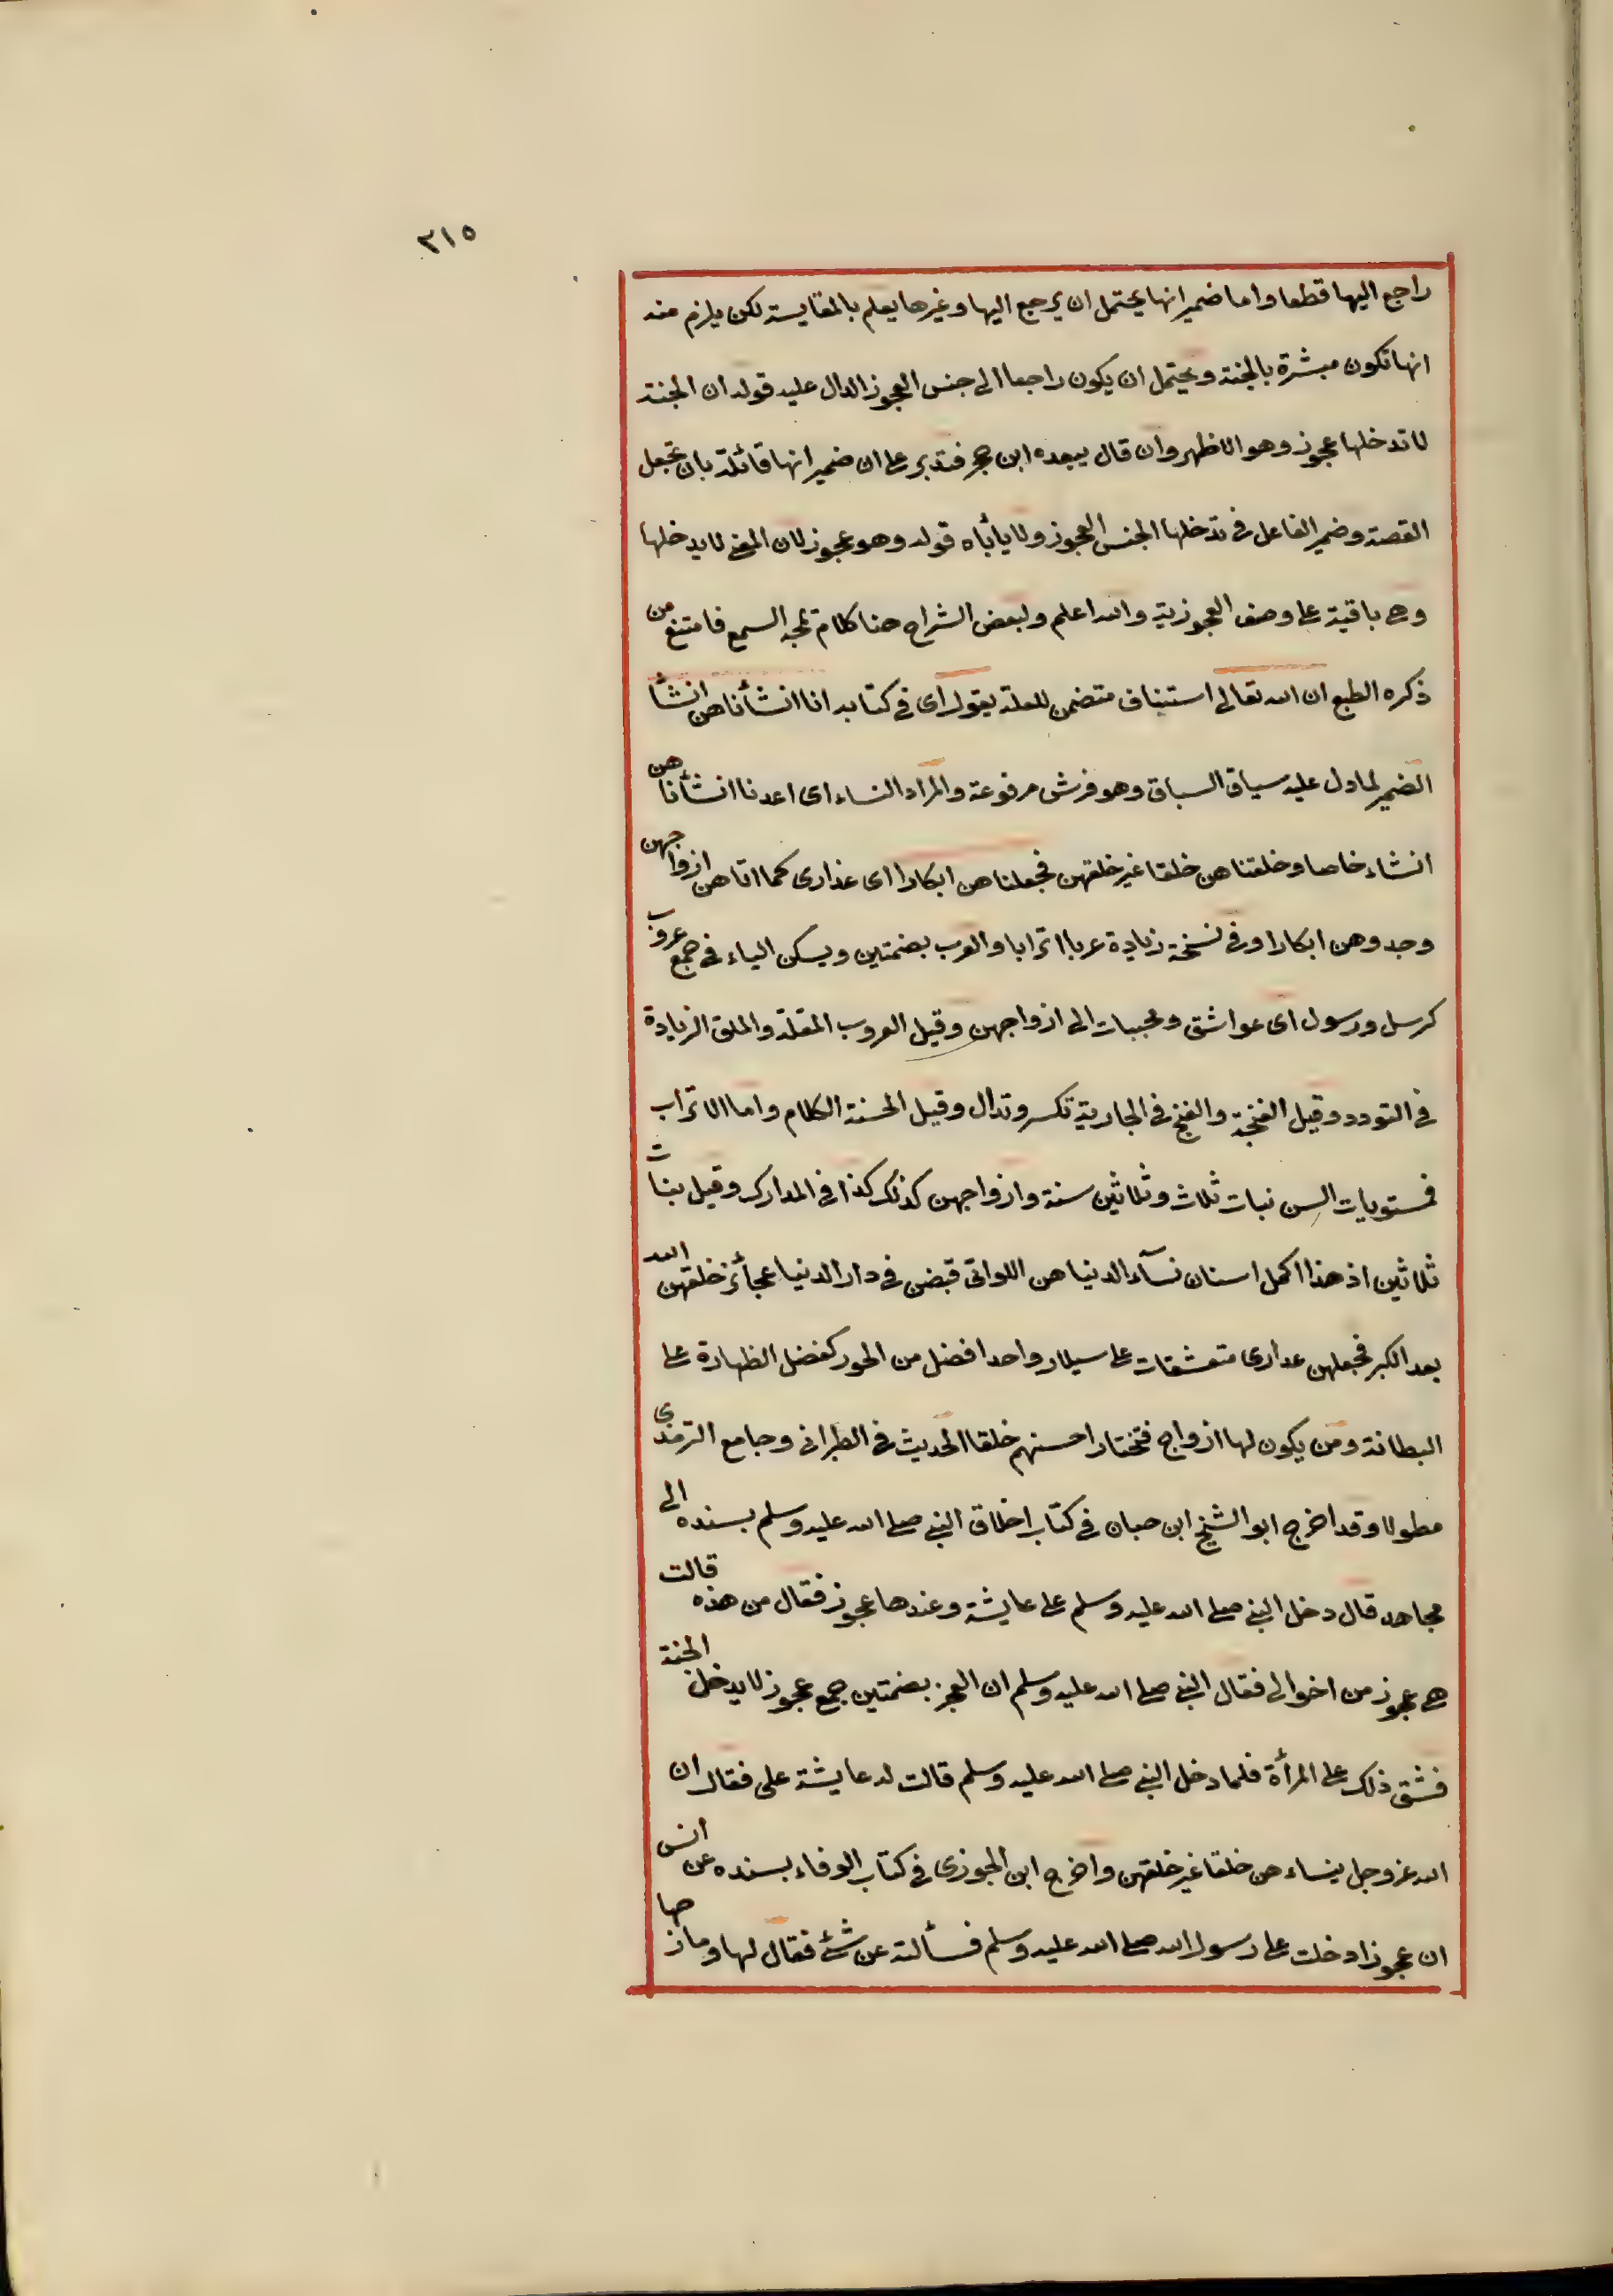 ٢١٥
راجع اليها قطعا واما ضمير انها يحتمل ان يرجع اليها وغيرها يعلم بالمقايسة لكن يلزم منه
انها تكون مبشرة بالجنة ويحتمل ان يكون راجعا الى جنس العجوز الدال عليه قوله ان الجنة
لا تدخلها عجوز وهو الاظهر وان قال يبعده ابن حجر فتدبر على ان ضمير انها قائلة بان تجعل
القصة وضمير الفاعل في تدخلها الجنس العجوز ولا يأباه قوله وهو عجوز لان المعنى لا يدخلها
وهي باقية على وصف العجوزية والله اعلم ولبعض الشراح هنا كلام تمجه السمع فامتنع من
ذكره الطبع ان الله تعالى استيناف متضمن للعلة يقول اى في كتابه انا انشأناهن انشأ
الضمير لما دل عليه سياق السباق وهو فرش مرفوعة والمراد النساء اى اعدنا انشأناهن
انشاء خاصا وخلقناهن خلقا غير خلقهن فجعلناهن ابكارا اى عذارى كما اتاهن ازواجهن
وجدوهن ابكارا وفى نسخة زيادة عربا اترابا والعرب بضمتين ويسكن الياء في جمع عروب
كرسل ورسول اى عواشق ومحببات الى ازواجهن وقيل العروب المقلة والملق الزيادة
في التودد وقيل الغنجة والغنج في الجارية تكسر وتدال وقيل الحسنة الكلام واما الاتراب
فمستويات السن نبات ثلاث وثلاثين سنة وازواجهن كذلك كذا في المدارك وقيل بنات
ثلاثين اذ هذا اكمل اسنان نسآء الدنيا هن اللواتى قبضن في دار الدنيا عجائز خلقهن الله
بعد الكبر فجعلهن عدارى متعشقات على سيلار واحد افضل من الحور كفضل الظهارة على
البطانة ومن يكون لها ازواج فتختار احسنهم خلقا الحديث في الطبرانى وجامع الترمذى
مطولا وقد اخرج ابو الشيخ ابن حبان في كتاب اخلاق النبى صلى الله عليه وسلم بسنده الى
مجاهد قال دخل النبى صلى الله عليه وسلم على عايشة وعندها عجوز فقال من هذه قالت
هي عجوز من اخوالى فقال النبى صلى الله عليه وسلم ان العجز بضمتين جمع عجوز لا يدخلن الجنة
فشق ذلك على المرأة فلما دخل النبى صلى الله عليه وسلم قالت له عايشة على فقال ان
الله عز وجل ينساء هن خلقا غير خلقهن واخرج ابن الجوزى في كتاب الوفاء بسنده عن انس
ان عجوزا دخلت على رسول الله صلى الله عليه وسلم فسألته عن شئ فقال لها ومازحها